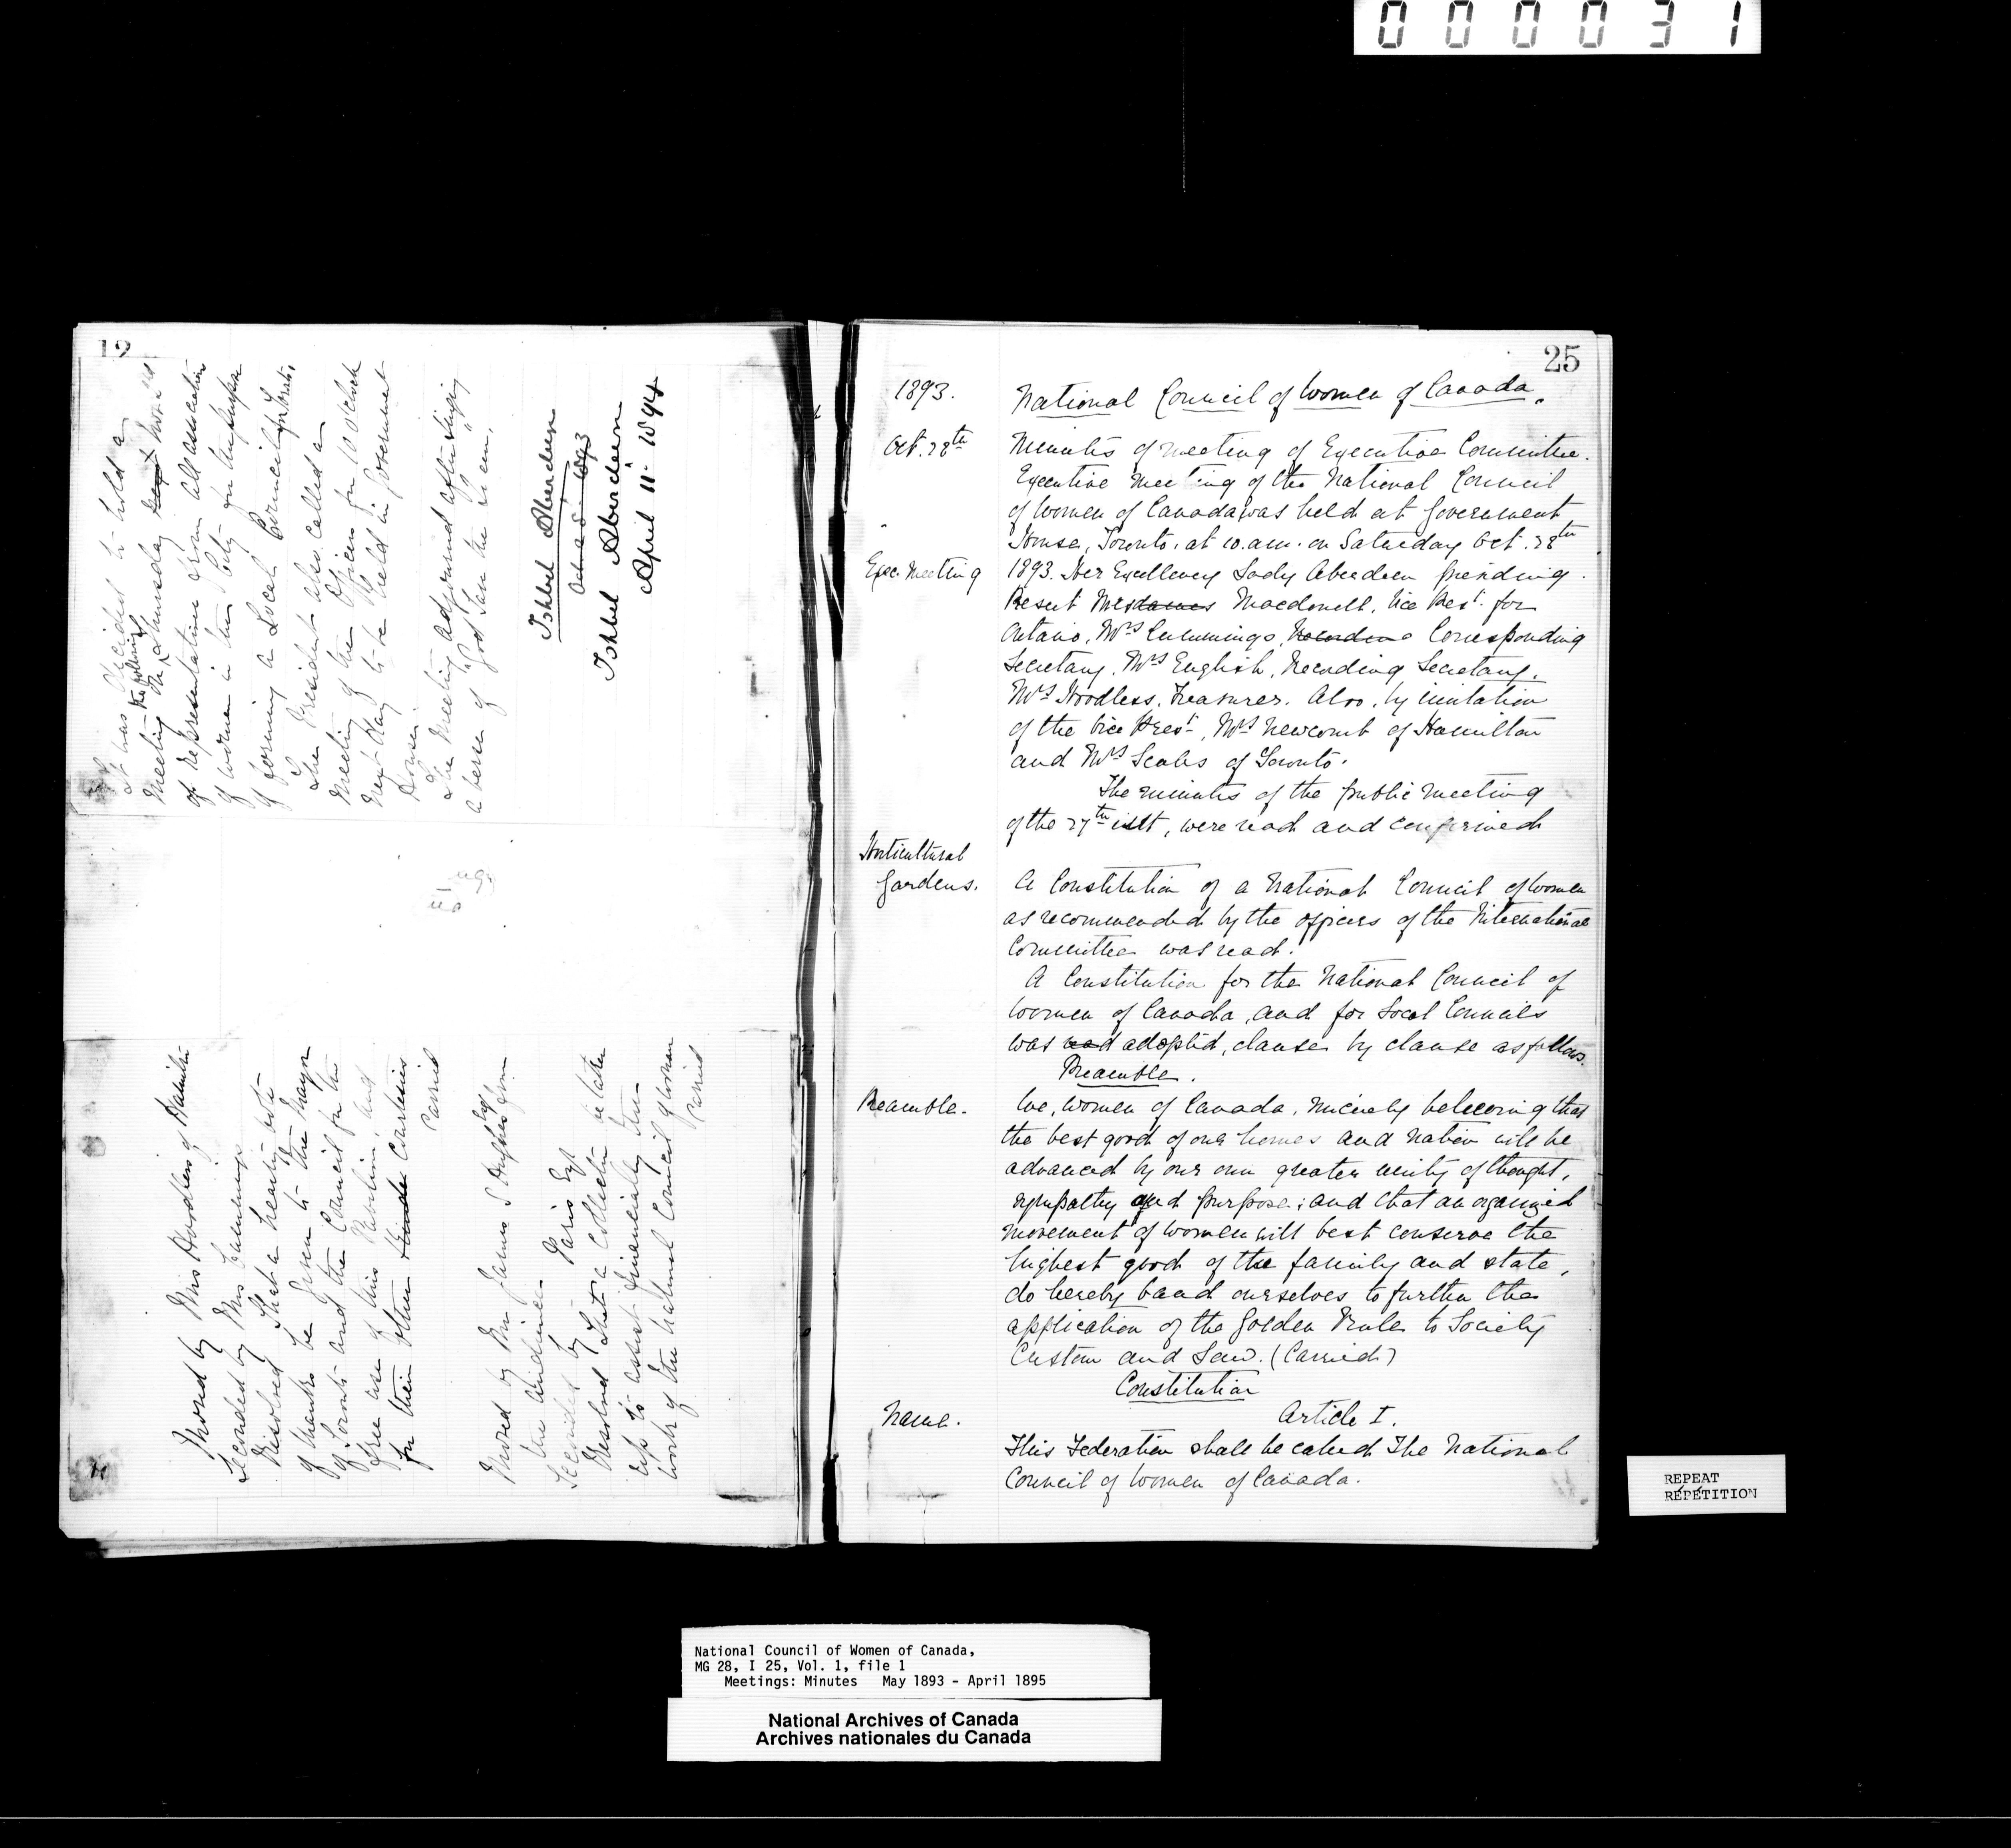 000031
19
It was decided to hold a
Meeting the following
on Thursday next two ladies
of representation from all associations
of women in the City for the purpose
of forming a Local Council for Toronto.
The President also called a
Meeting of the Officers for 10 oclock
next day to be held in Government
House.
The Meeting adjourned after singing
a verse of "God Save the Queen."
Ishbel Aberdeen
1893
Ishbel Aberdeen
April 11. 1894
Moved by Mrs Hoodless of Hamilton
Seconded by Mrs Cummings
Resolved That a hearty vote
of thanks be given to the Mayor
of Toronto and the Council for the
free use of this Pavilion, and
for their other kind courtesies
Carried
Moved by Mrs James S Hughes from
the audience
Seconded by Paris Esq
Resolved That a Collection be taken
up to assist financially the
work of the National Council of Women
Carried
25
1893.
National Council of Women of Canada.
Oct. 28th
Minutes of meeting of Executive Committee.
Executive Meeting of the National Council
of Women of Canada was held at Government
House, Toronto, at 10. a.m. on Saturday Oct. 28th
Exec. Meeting
1893. Her Excellency Lady Aberdeen presiding.
Present Mesdames Macdonell, Vice Prest. for
Ontario, Mrs Cummings, Recording Corresponding
Secretary, Mrs English, Recording Secretary,
Mrs Hoodless, Treasurer. Also, by invitation
of the Vice Prest, Mrs Newcomb of Hamilton
and Mrs Scales of Toronto.
The minutes of the public Meeting
of the 27th inst, were read and confirmed
Horticultural
Gardens.
A Constitution of a National Council of Women
as recommended by the officers of the International
Committee was read.
A Constitution for the National Council of
Women of Canada, and for Local Councils
was read adopted, clause by clause as follows.
Preamble.
Preamble.
We, Women of Canada, sincerely believing that
the best good of our homes and nation will be
advanced by our own greater unity of thought,
sympathy and purpose; and that an organized
movement of women will best conserve the
highest good of the family and state,
do hereby band ourselves to further the
application of the Golden Rule to Society
Custom and Law. (Carried)
Constitution
Article I.
Name.
This Federation shall be called The National
Council of Women of Canada.
REPEAT
RÉPÉTITION
National Council of Women of Canada,
MG 28, I 25, Vol. 1, file 1
Meetings: Minutes May 1893 - April 1895
National Archives of Canada
Archives nationales du Canada